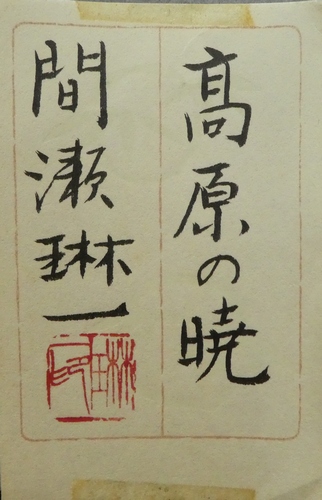 高原の暁
間瀬琳一